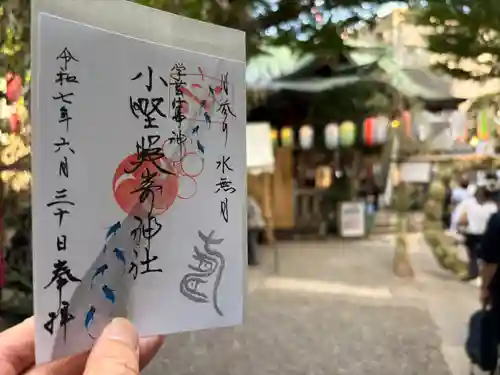 月参り 水無月
学芸仕事神
小野照崎神社
令和七年六月三十日 奉拝